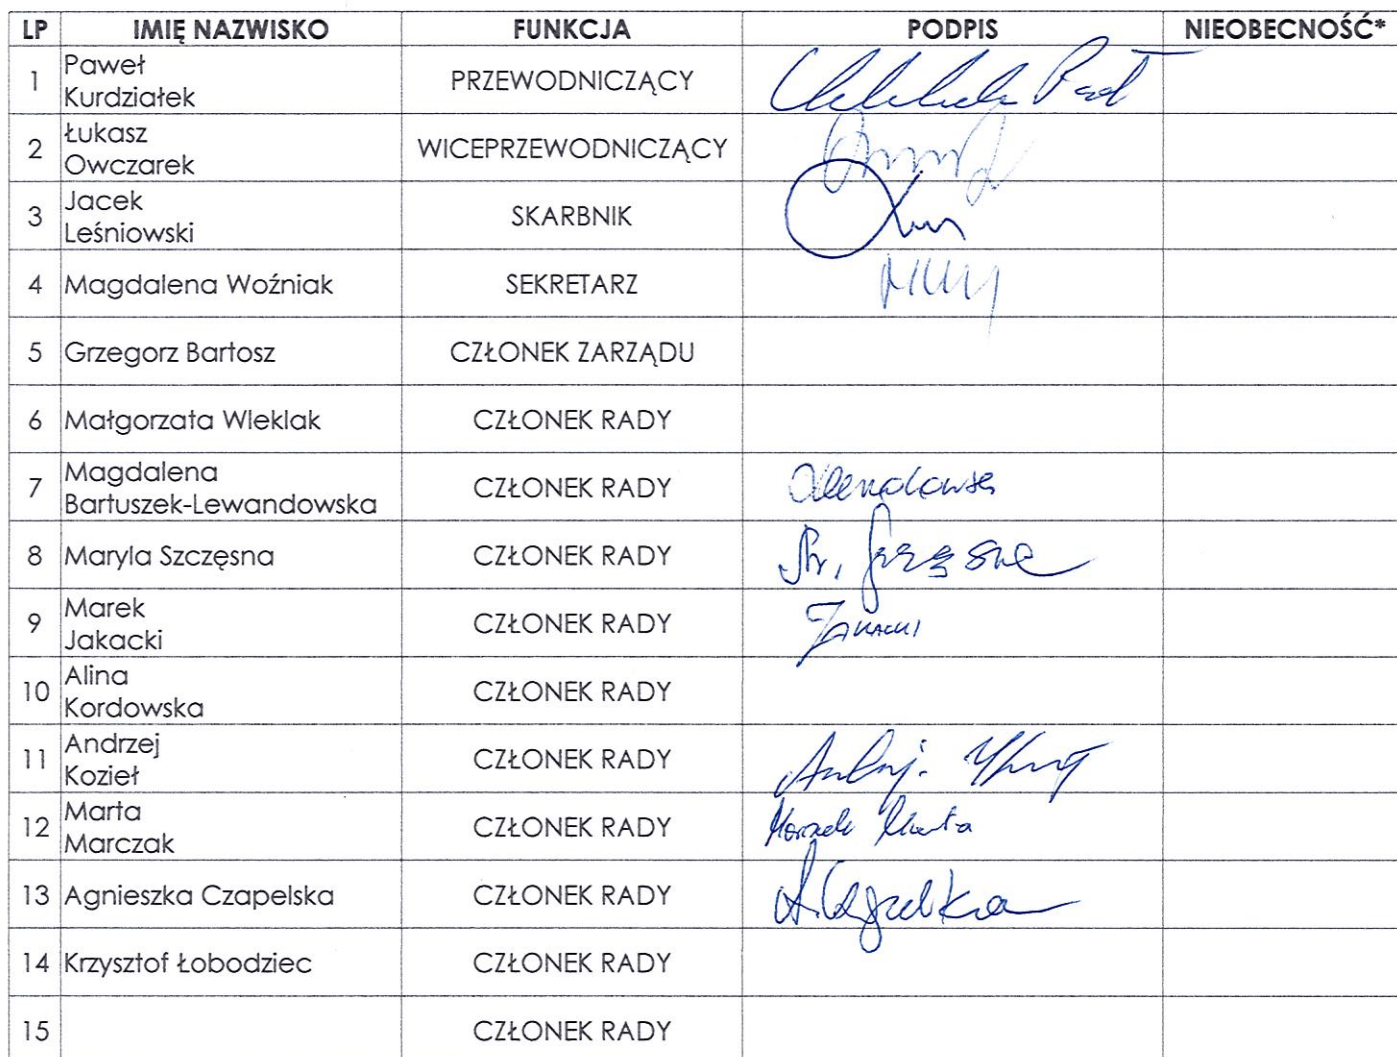 LP IMIĘ NAZWISKO FUNKCJA PODPIS NIEOBECNOŚĆ*
1 Paweł
Kurdziałek PRZEWODNICZĄCY
2 Łukasz
Owczarek WICEPRZEWODNICZĄCY
3 Jacek
Leśniowski SKARBNIK
4 Magdalena Woźniak SEKRETARZ
5 Grzegorz Bartosz CZŁONEK ZARZĄDU
6 Małgorzata Wleklak CZŁONEK RADY
7 Magdalena
Bartuszek-Lewandowska CZŁONEK RADY
8 Maryla Szczęsna CZŁONEK RADY
9 Marek
Jakacki CZŁONEK RADY Jakacki
10 Alina
Kordowska CZŁONEK RADY
11 Andrzej
Kozieł CZŁONEK RADY
12 Marta
Marczak CZŁONEK RADY Marczak Marta
13 Agnieszka Czapelska CZŁONEK RADY
14 Krzysztof Łobodziec CZŁONEK RADY
15 CZŁONEK RADY